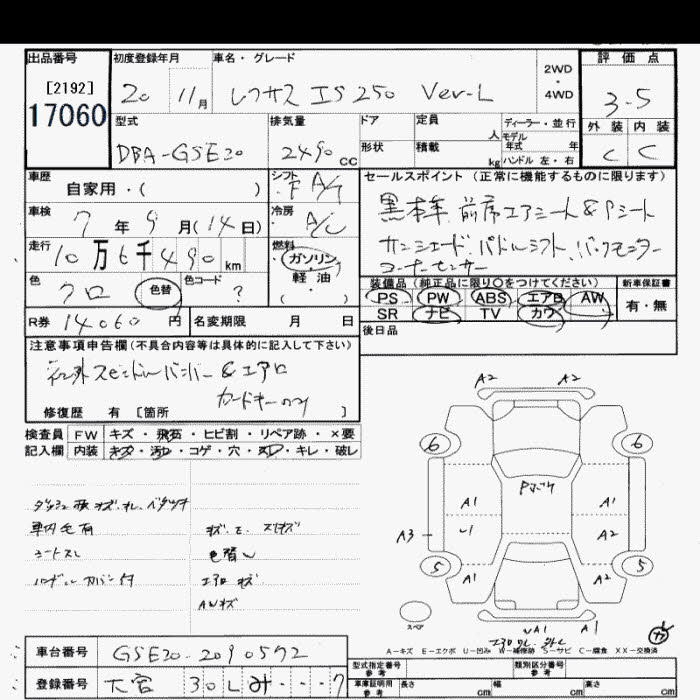 出品番号 初度登録年月 車名・グレード 2WD・4WD 評価点
[2192]
17060
20 11月 レクサス IS250 Ver-L 3-5
型式 排気量 ドア 定員 人 ディーラー・並行 外装 内装
DBA-GSE20 2490cc 形状 積載 kg モデル年式 年 ハンドル 左・右 C C
車歴 自家用・( ) シフト F A/T セールスポイント (正常に機能するものに限ります)
車検 7年9月(14日) 冷房 A/C 黒本革 前席エアシート&Pシート
サンシェード、パドルシフト、バックモニター
コーナーセンサー
走行 10万6千490km 燃料 ガソリン・軽油・( )
装備品 (純正品に限り○をつけてください) 新車保証書
色 クロ 色替 色コード ? PS PW ABS エアB AW 有・無
R券 14060円 名変期限 月 日 SR ナビ TV カワ
後日品
注意事項申告欄(不具合内容等は具体的に記入して下さい)
社外スピンドルバンパー&エアロ
カードキーのみ
修復歴 有 [箇所 ]
検査員 FW キズ・飛石・ヒビ割・リペア跡・×要
記入欄 内装 キズ・汚れ・コゲ・穴・スレ・キレ・破レ
車内毛有
シートスレ
ハンドルカバー付
色替
エアロキズ
AWキズ
A2 A2
6 6
A1 A1
A3 A2
5 5
A1 A2
スペア
A1 A1
A-キズ E-エクボ U-凹み W-補修跡 S-サビ C-腐食 XX-交換済
車台番号 GSE20-2090572
型式指定番号 参考 類別区分番号 参考
登録番号 大宮 30 し み ・・・7 車庫証明用 参考 長さ cm 幅 cm 高さ cm